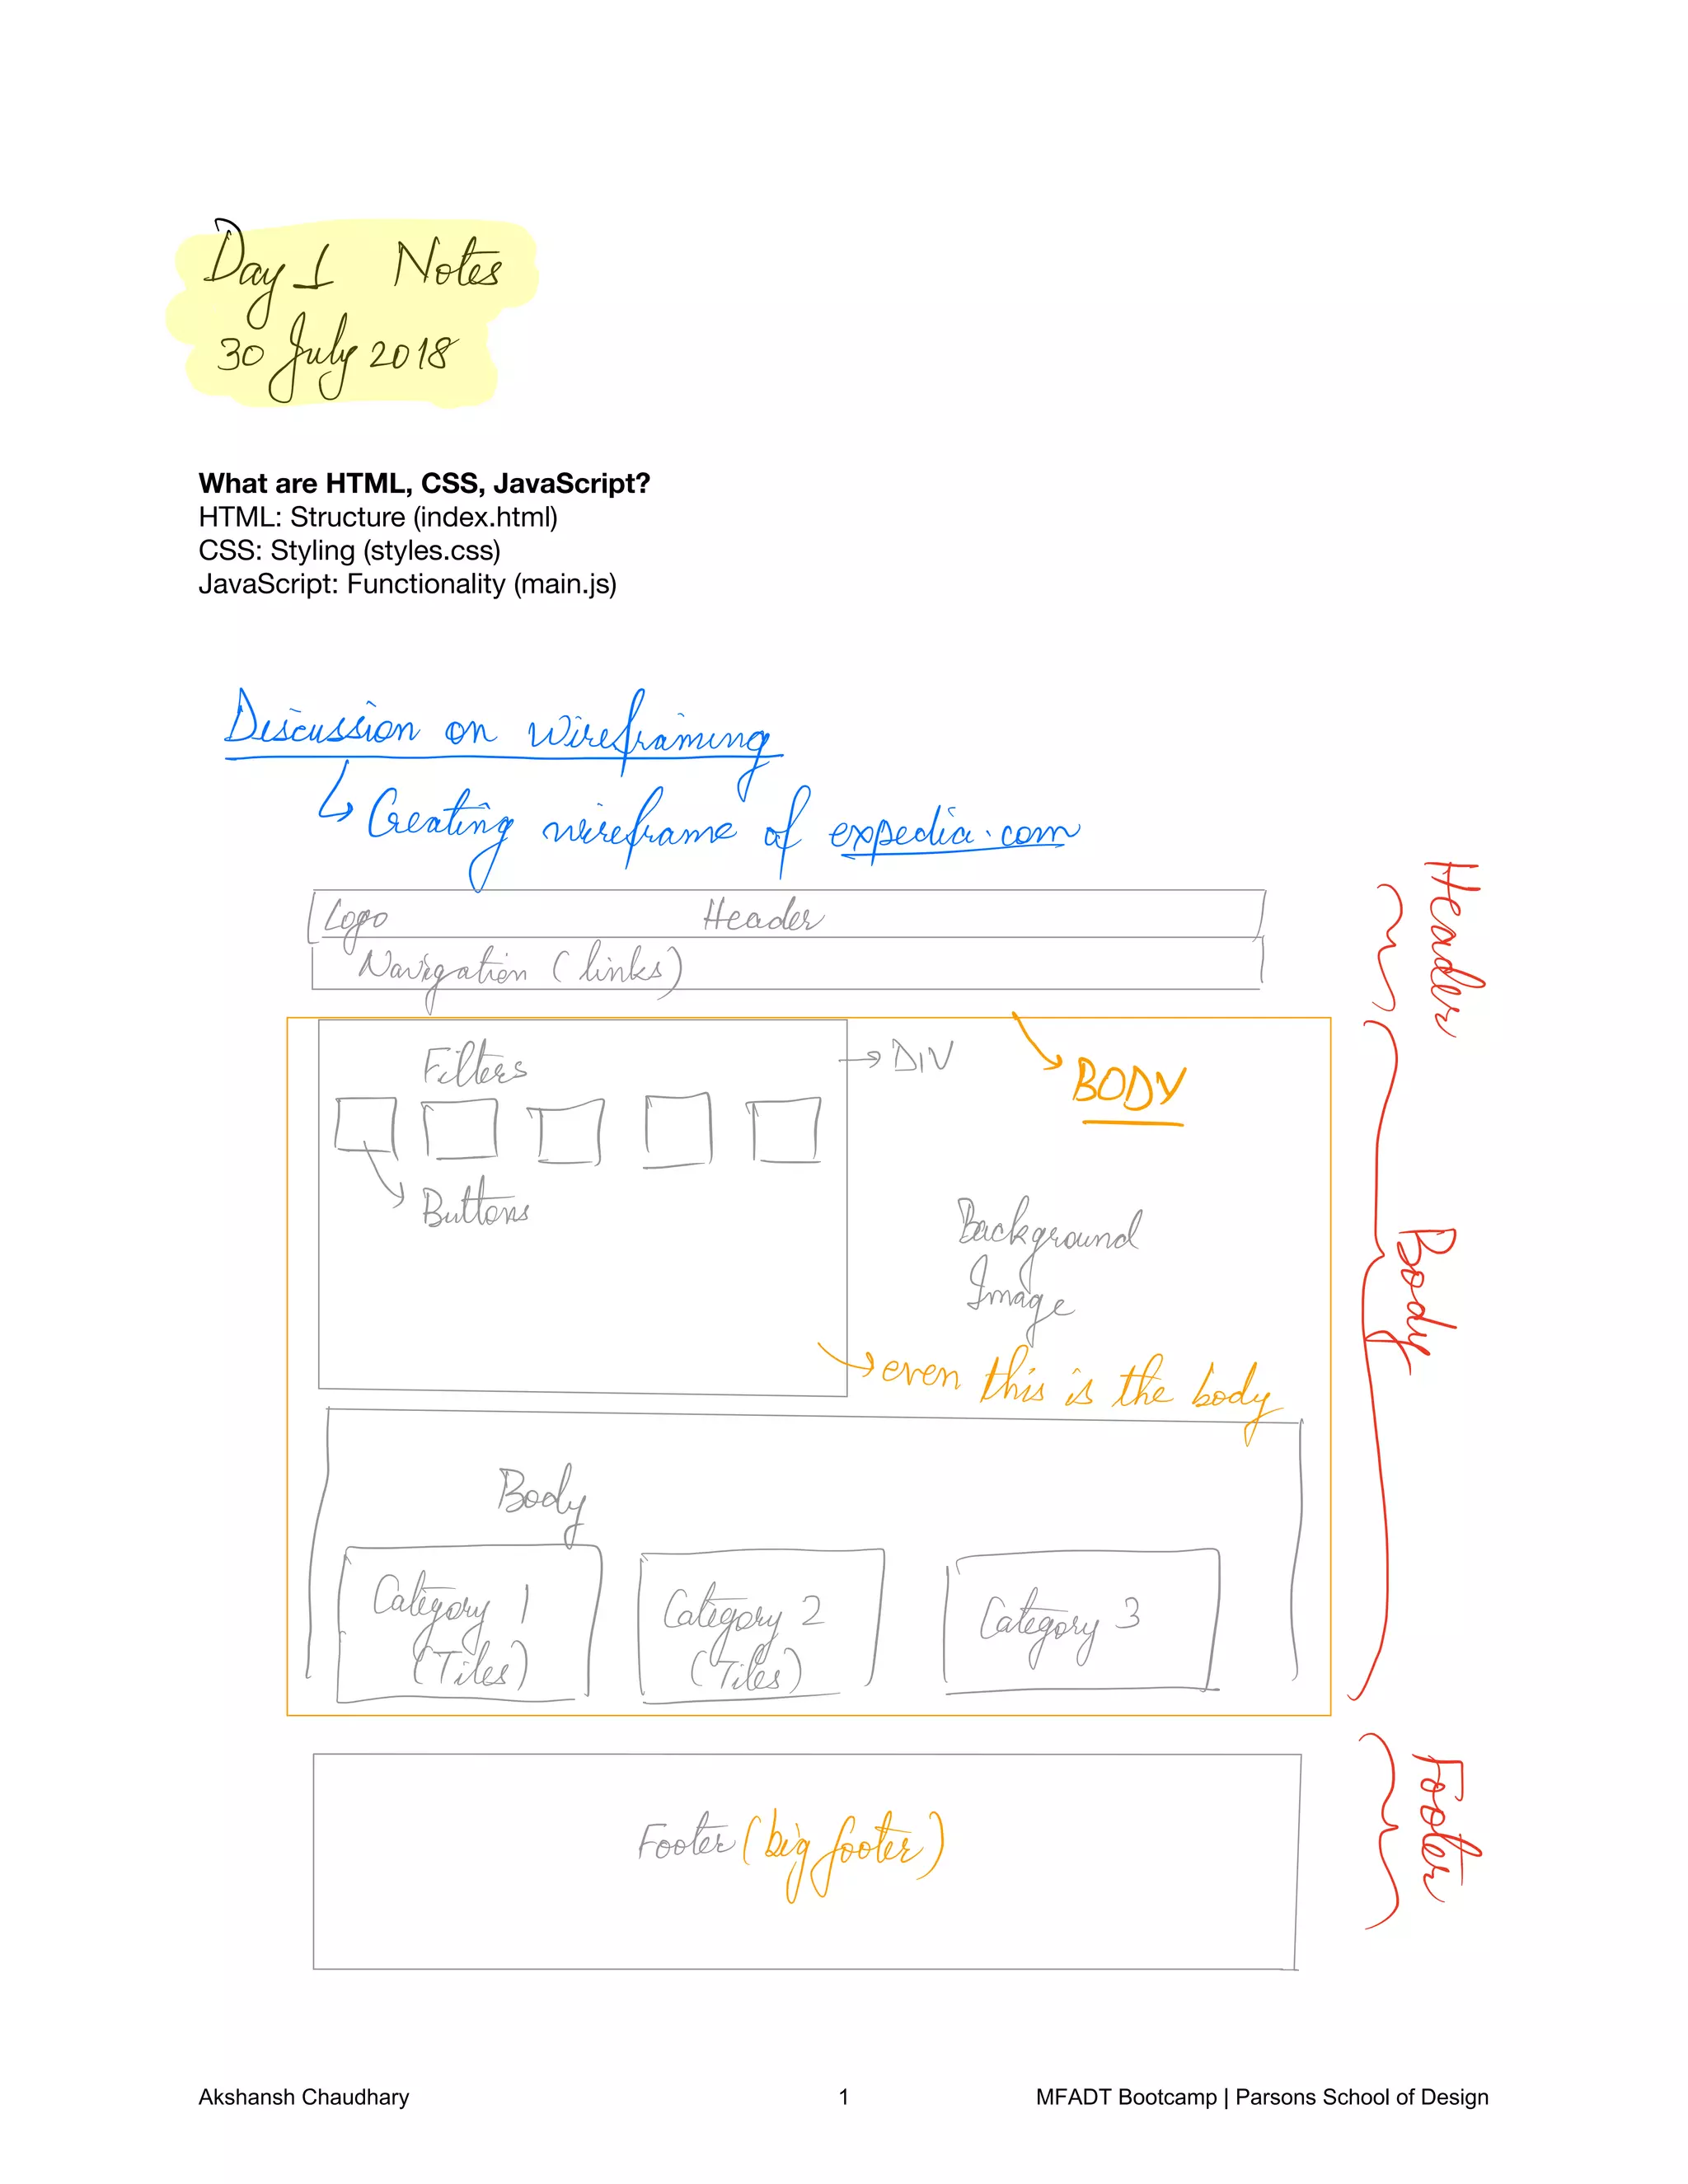 Day 1 Notes
30 July 2018
What are HTML, CSS, JavaScript?
HTML: Structure (index.html)
CSS: Styling (styles.css)
JavaScript: Functionality (main.js)
Discussion on wireframing
Creating wireframe of expedia.com
Header
Logo Header
Navigation (links)
Filters
DIV
BODY
Buttons
Background
Image
Body
even this is the body
Body
Category 1
(Tiles)
Category 2
(Tiles)
Category 3
Footer (big footer)
Footer
Akshansh Chaudhary 1 MFADT Bootcamp | Parsons School of Design